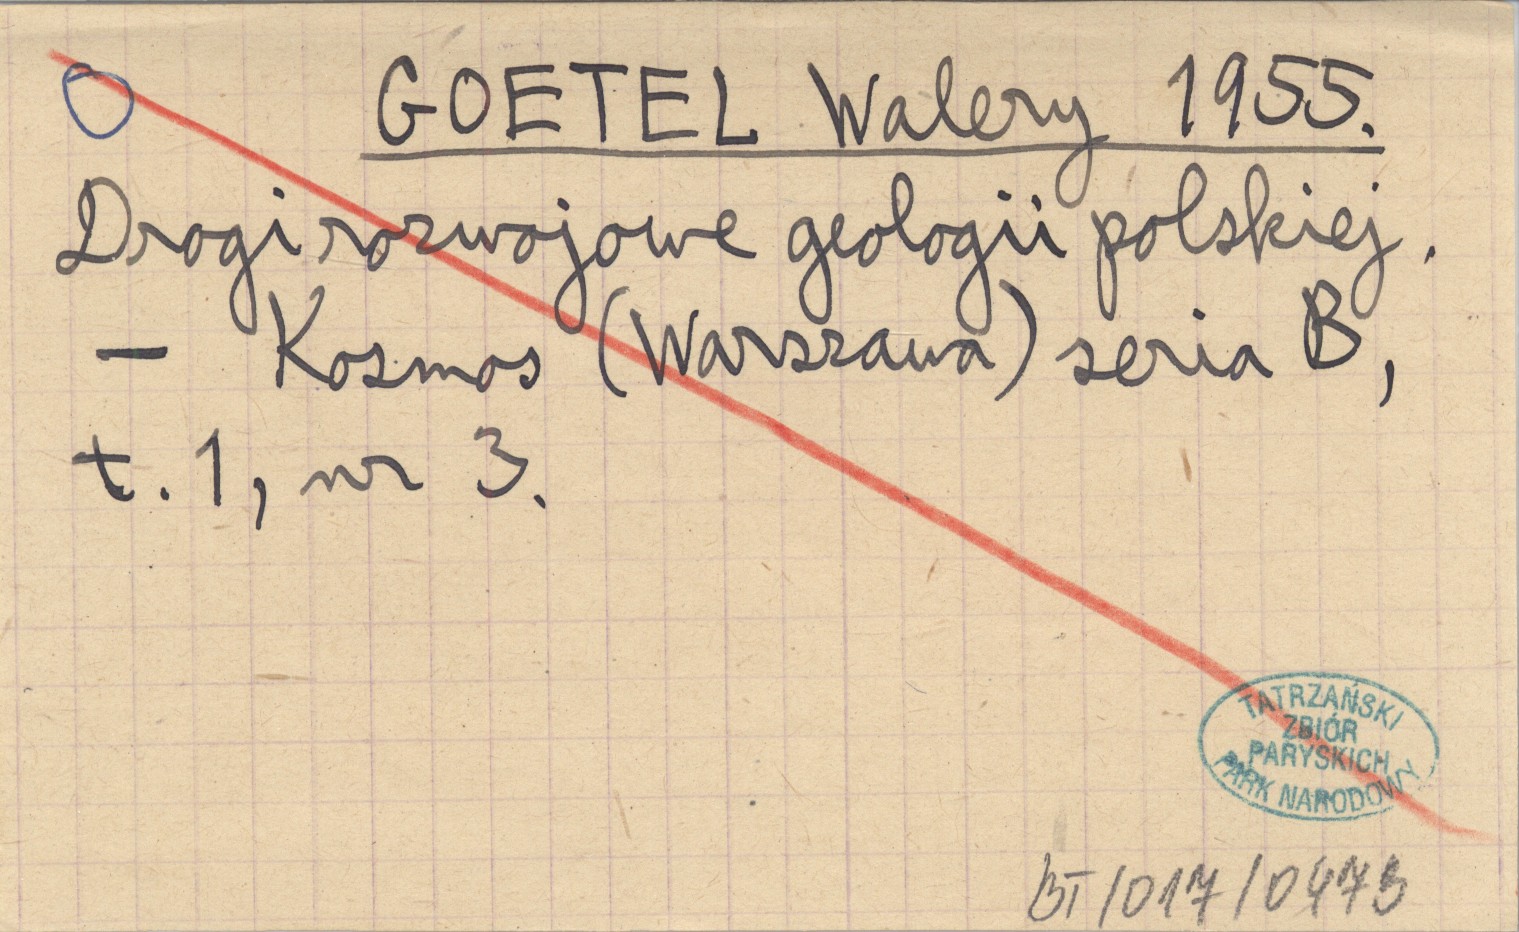 GOETEL Walery 1955.
Drogi rozwojowe geologii polskiej.
– Kosmos (Warszawa) seria B,
t. 1, nr 3.
TATRZAŃSKI
ZBIÓR
PARYSKICH
PARK NARODOWY
BT/017/0473